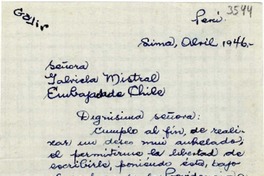 Galir
Perú.
3544
Lima, Abril 1946.-
Señora
Gabriela Mistral
Embajada de Chile
Dignísima señora:
Cumplo al fin, de reali-
zar, un deseo mui anhelado;
el permitirme la libertad de
escribirle, poniendo ésta, bajo